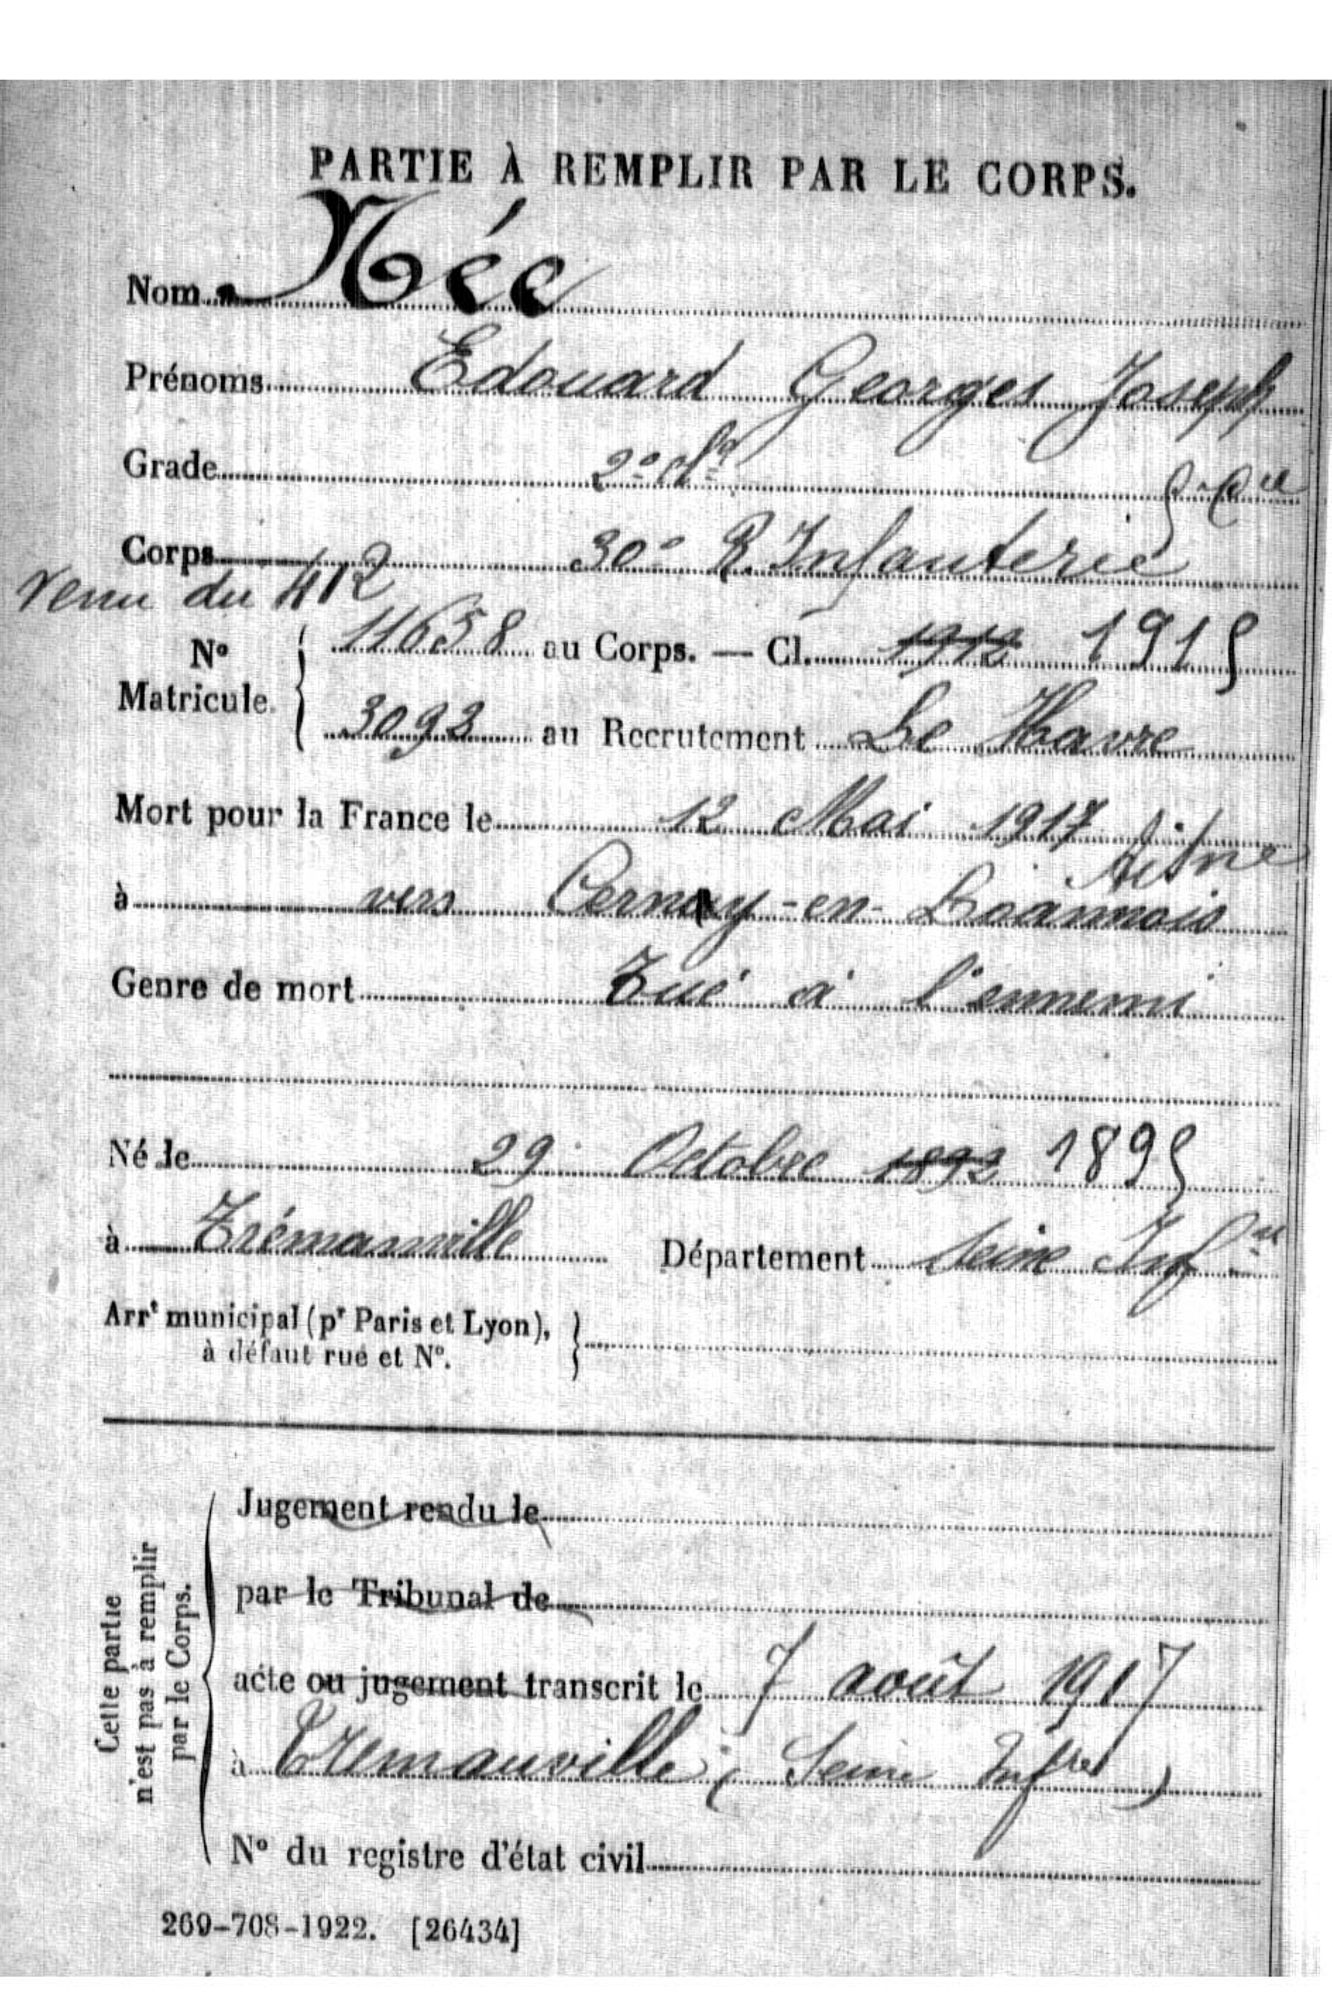 PARTIE À REMPLIR PAR LE CORPS.
Nom Née
Prénoms Edouard Georges Joseph
Grade 2e cl
Corps 30e R. Infanterie
venu du 412
No Matricule 11658 au Corps. — Cl. 1912 1915
3093 au Recrutement Le Havre
Mort pour la France le 12 Mai 1917
Aisne
à vers Cernay-en-Laonnois
Genre de mort Tué à l'ennemi
Né le 29 Octobre 1892 1895
à Trémauville Département Seine Infre
Arrt municipal (pr Paris et Lyon),
à défaut rue et No.
Cette partie
n'est pas à remplir
par le Corps.
Jugement rendu le
par le Tribunal de
acte ou jugement transcrit le 7 août 1917
à Trémauville (Seine Infre)
No du registre d'état civil
269-708-1922. [26434]